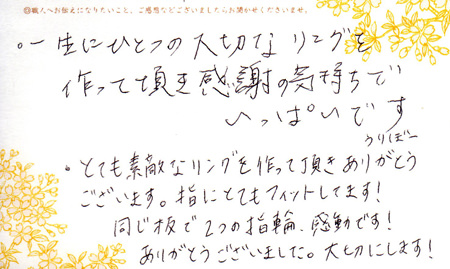 ◎職人へお伝えになりたいこと、ご感想などございましたらお聞かせくださいませ。
・一生にひとつの大切なリングを
作って頂き感謝の気持ちで
いっぱいです
うりぼー
・とても素敵なリングを作って頂きありがとう
ございます。指にとてもフィットしてます!
同じ板で2つの指輪、感動です!
ありがとうございました。大切にします!